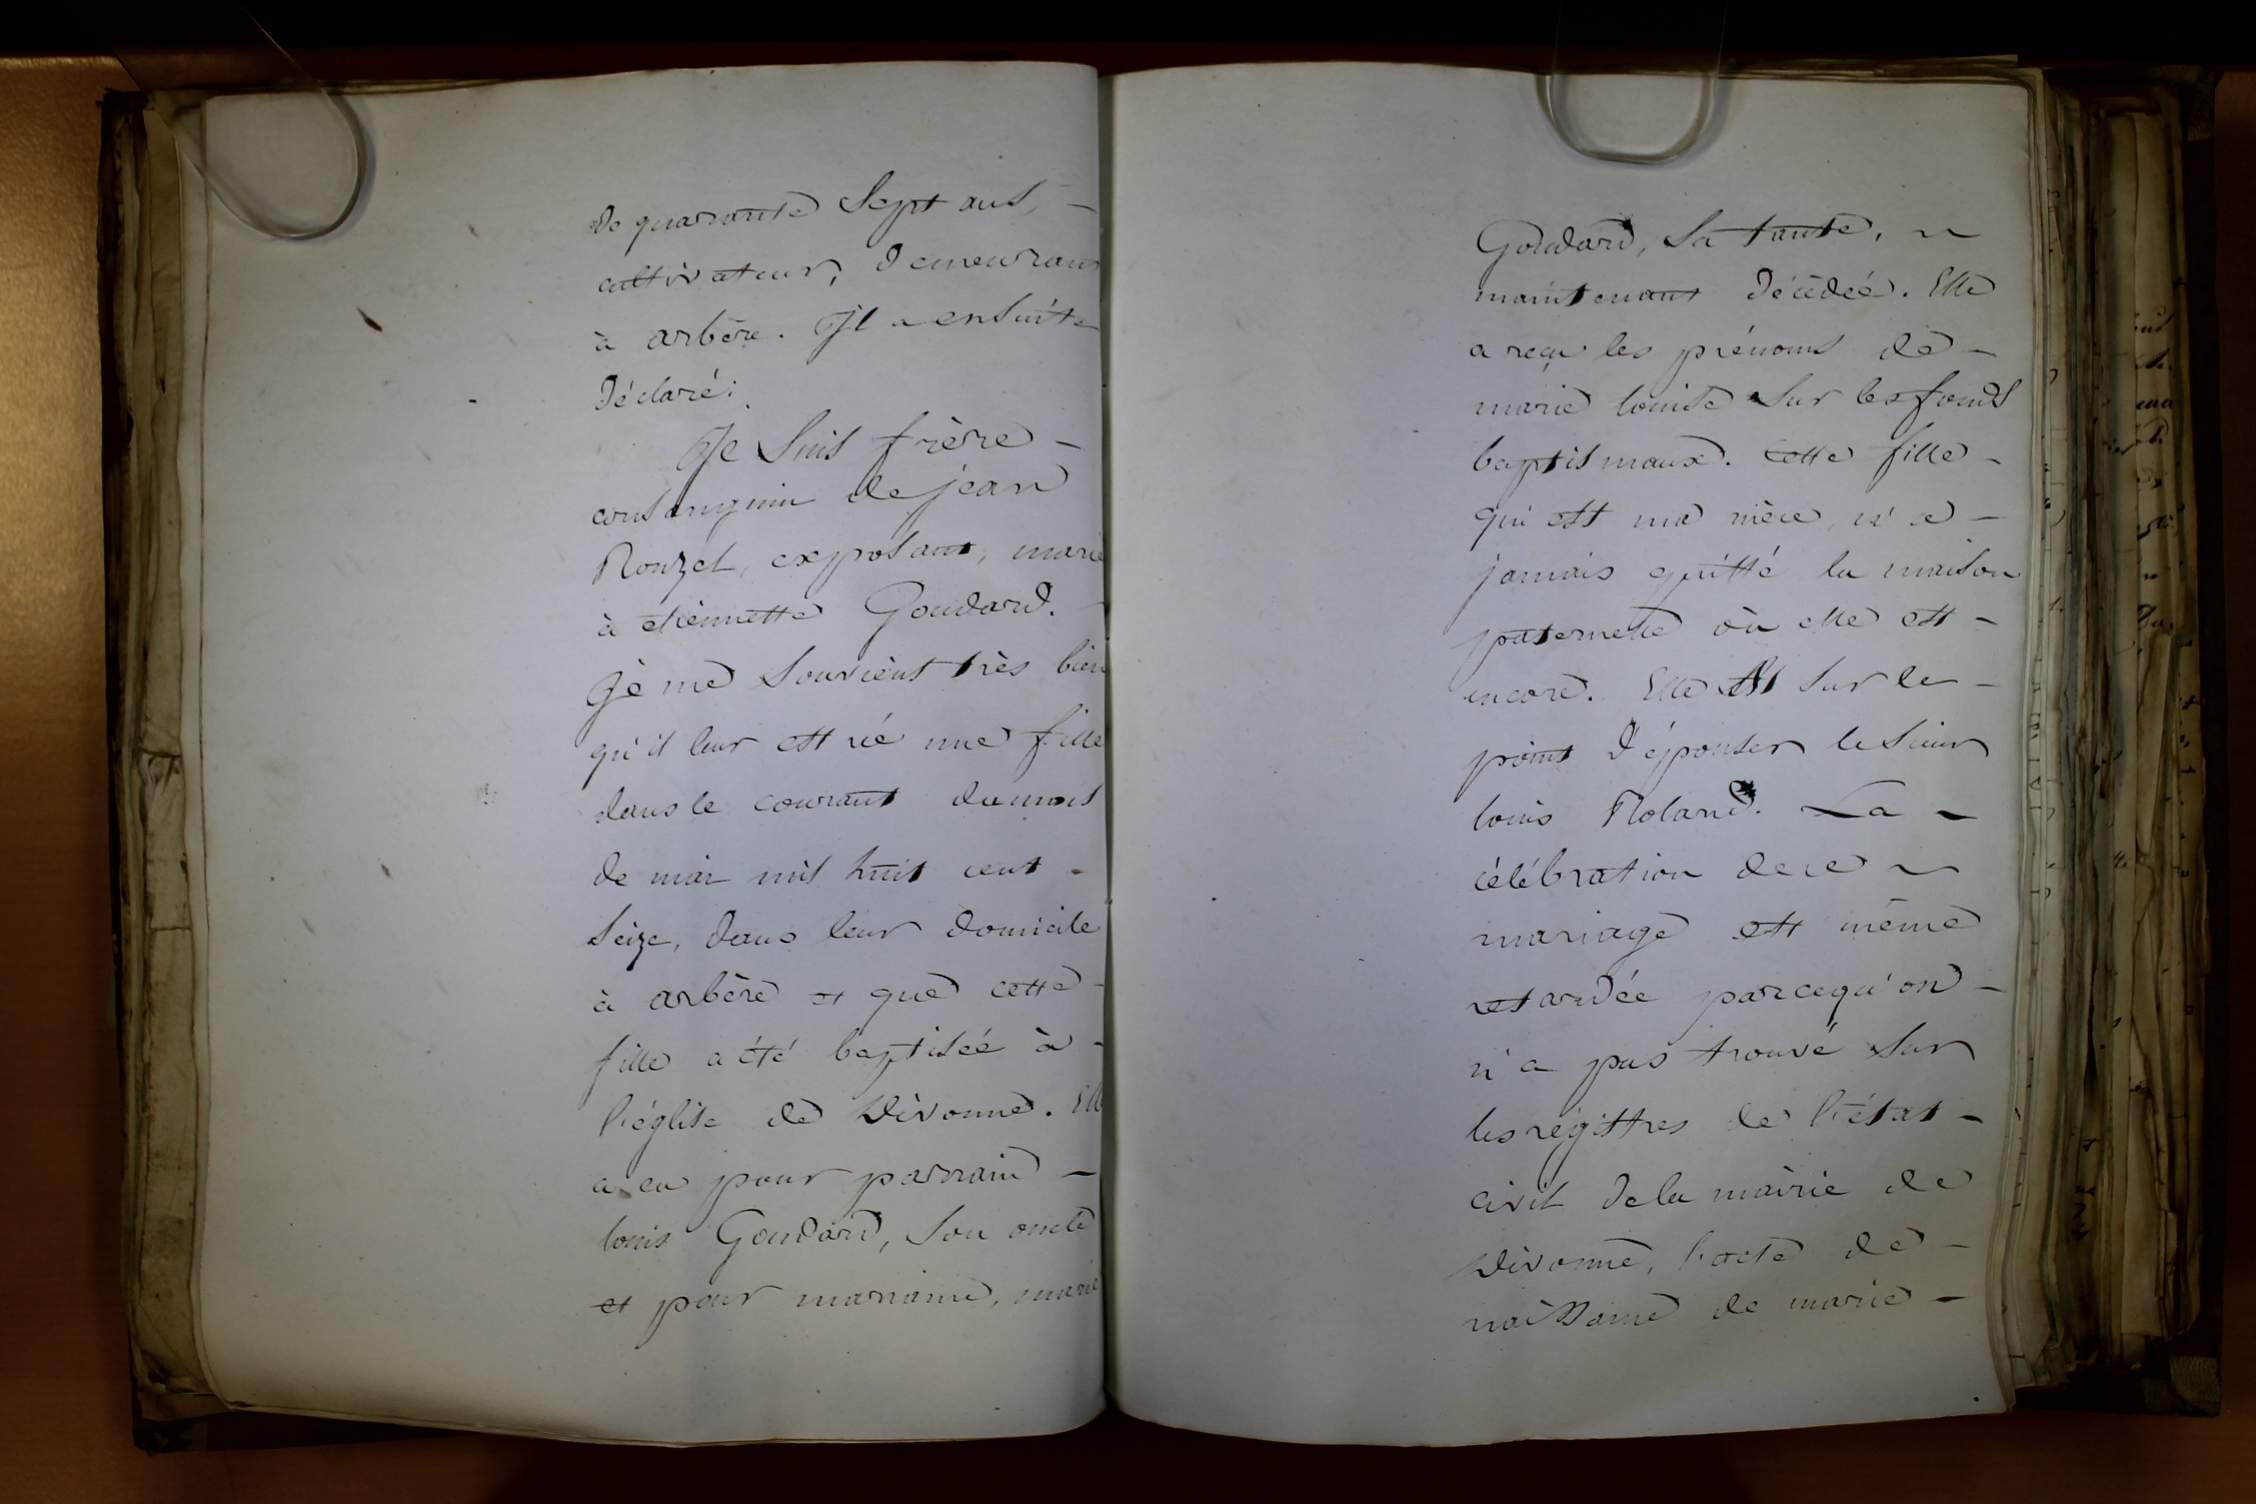 de quarante sept ans, -
cultivateur, demeurant
à arbère. Il a ensuite
déclaré:
Je suis frère -
consanguin de jean
Rouzet, exposant, marié
à etiennette Goudard. -
Je me souviens très bien
qu'il leur est né une fille
dans le courant du mois
de mai mil huit cent -
seize, dans leur domicile
à arbère et que cette -
fille a été baptisée à -
l'église de Divonne. Elle
a eu pour parrain -
louis Goudard, son oncle
et pour marraine, marie
Goudard, sa tante, ~
maintenant décédée. Elle
a reçu les prénoms de -
marie louise sur les fonds
baptismaux. cette fille -
qui est ma nièce, n'a -
jamais quitté la maison
paternelle où elle est -
encore. Elle est sur le -
point d'épouser le sieur
louis Roland. La -
célébration de ce ~
mariage est même
retardée parcequ'on -
n'a pas trouvé sur
les régistres de l'état -
civil de la mairie de
Divonne, l'acte de -
naissance de marie -